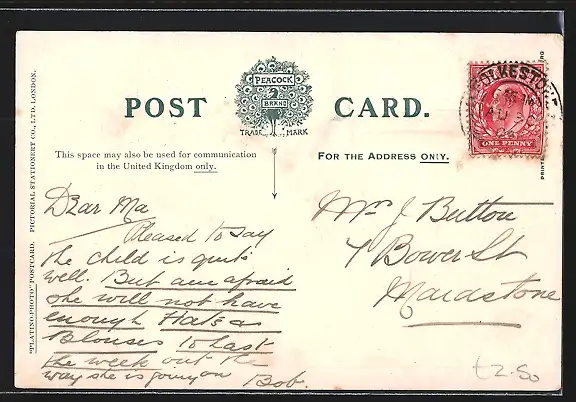 POST CARD.
PEACOCK
BRAND
TRADE MARK
This space may also be used for communication
in the United Kingdom only.
FOR THE ADDRESS ONLY.
"PLATINO-PHOTO" POSTCARD. PICTORIAL STATIONERY CO., LTD. LONDON.
Dear Ma
Pleased to say
the child is quite
well. But am afraid
she will not have
enough Hats &
Blouses to last
the week out the
way she is going on
Bob.
Mrs J. Button
7 Bower St
Maidstone
FOLKESTONE
AU
ONE PENNY
£2.50